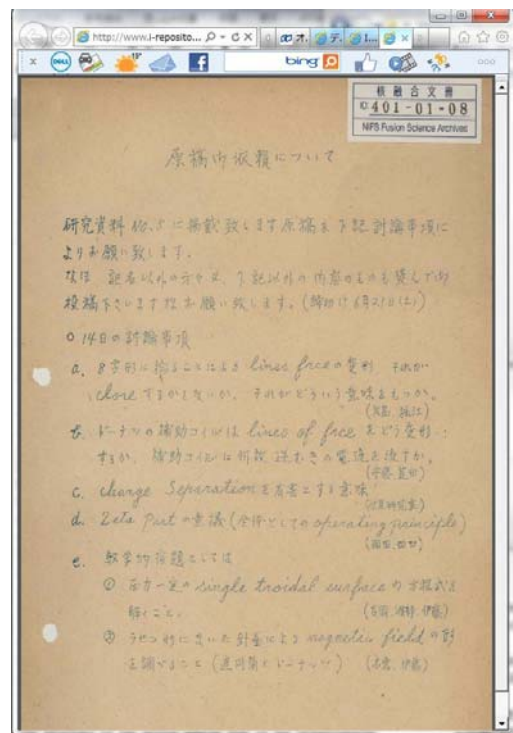 http://www.i-reposito...
bing
核融合文書
ID: 401-01-08
NIFS Fusion Science Archives
原稿御依頼について
研究資料 No.5 に掲載致します原稿を下記討論事項に
よりお願い致します。
なほ 記名以外の方々は、下記以外の内容のものも喜んで御
投稿下さいます様お願い致します。(締切は6月21日(土))
○ 14日の討論事項
a. 8字形に捻ることによる lines force の変形 それが
close するかしないか、それがどういう意味をもつか。
b. ドーナツの補助コイルは lines of force をどう変形
するか、補助コイルは何故逆むきの電流を流すか。
c. change Separation を有害とする意味
d. Zeta Part の意議 (全体としての operating principle)
e. 数学的宿題としては
① 圧力一定の single troidal surface の方程式を
解くこと。
② magnetic field の形
を調べること